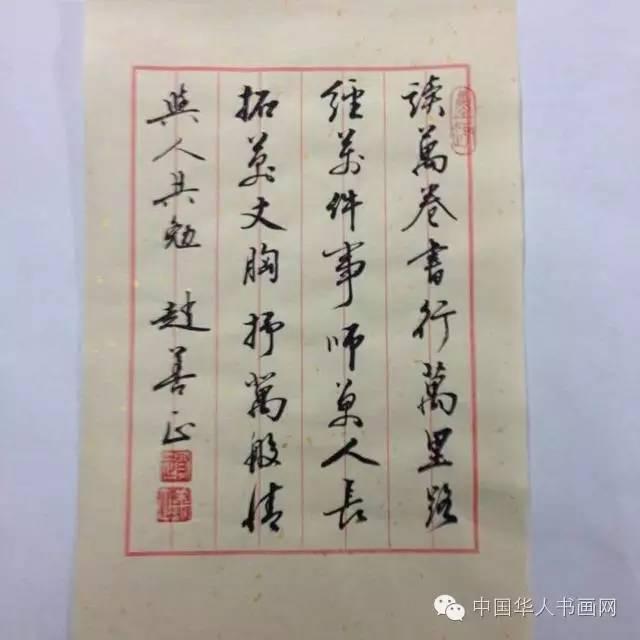 讀萬卷書行萬里路
經萬件事師萬人長
拓萬丈胸抒萬般情
與人共勉 趙善正
中国华人书画网